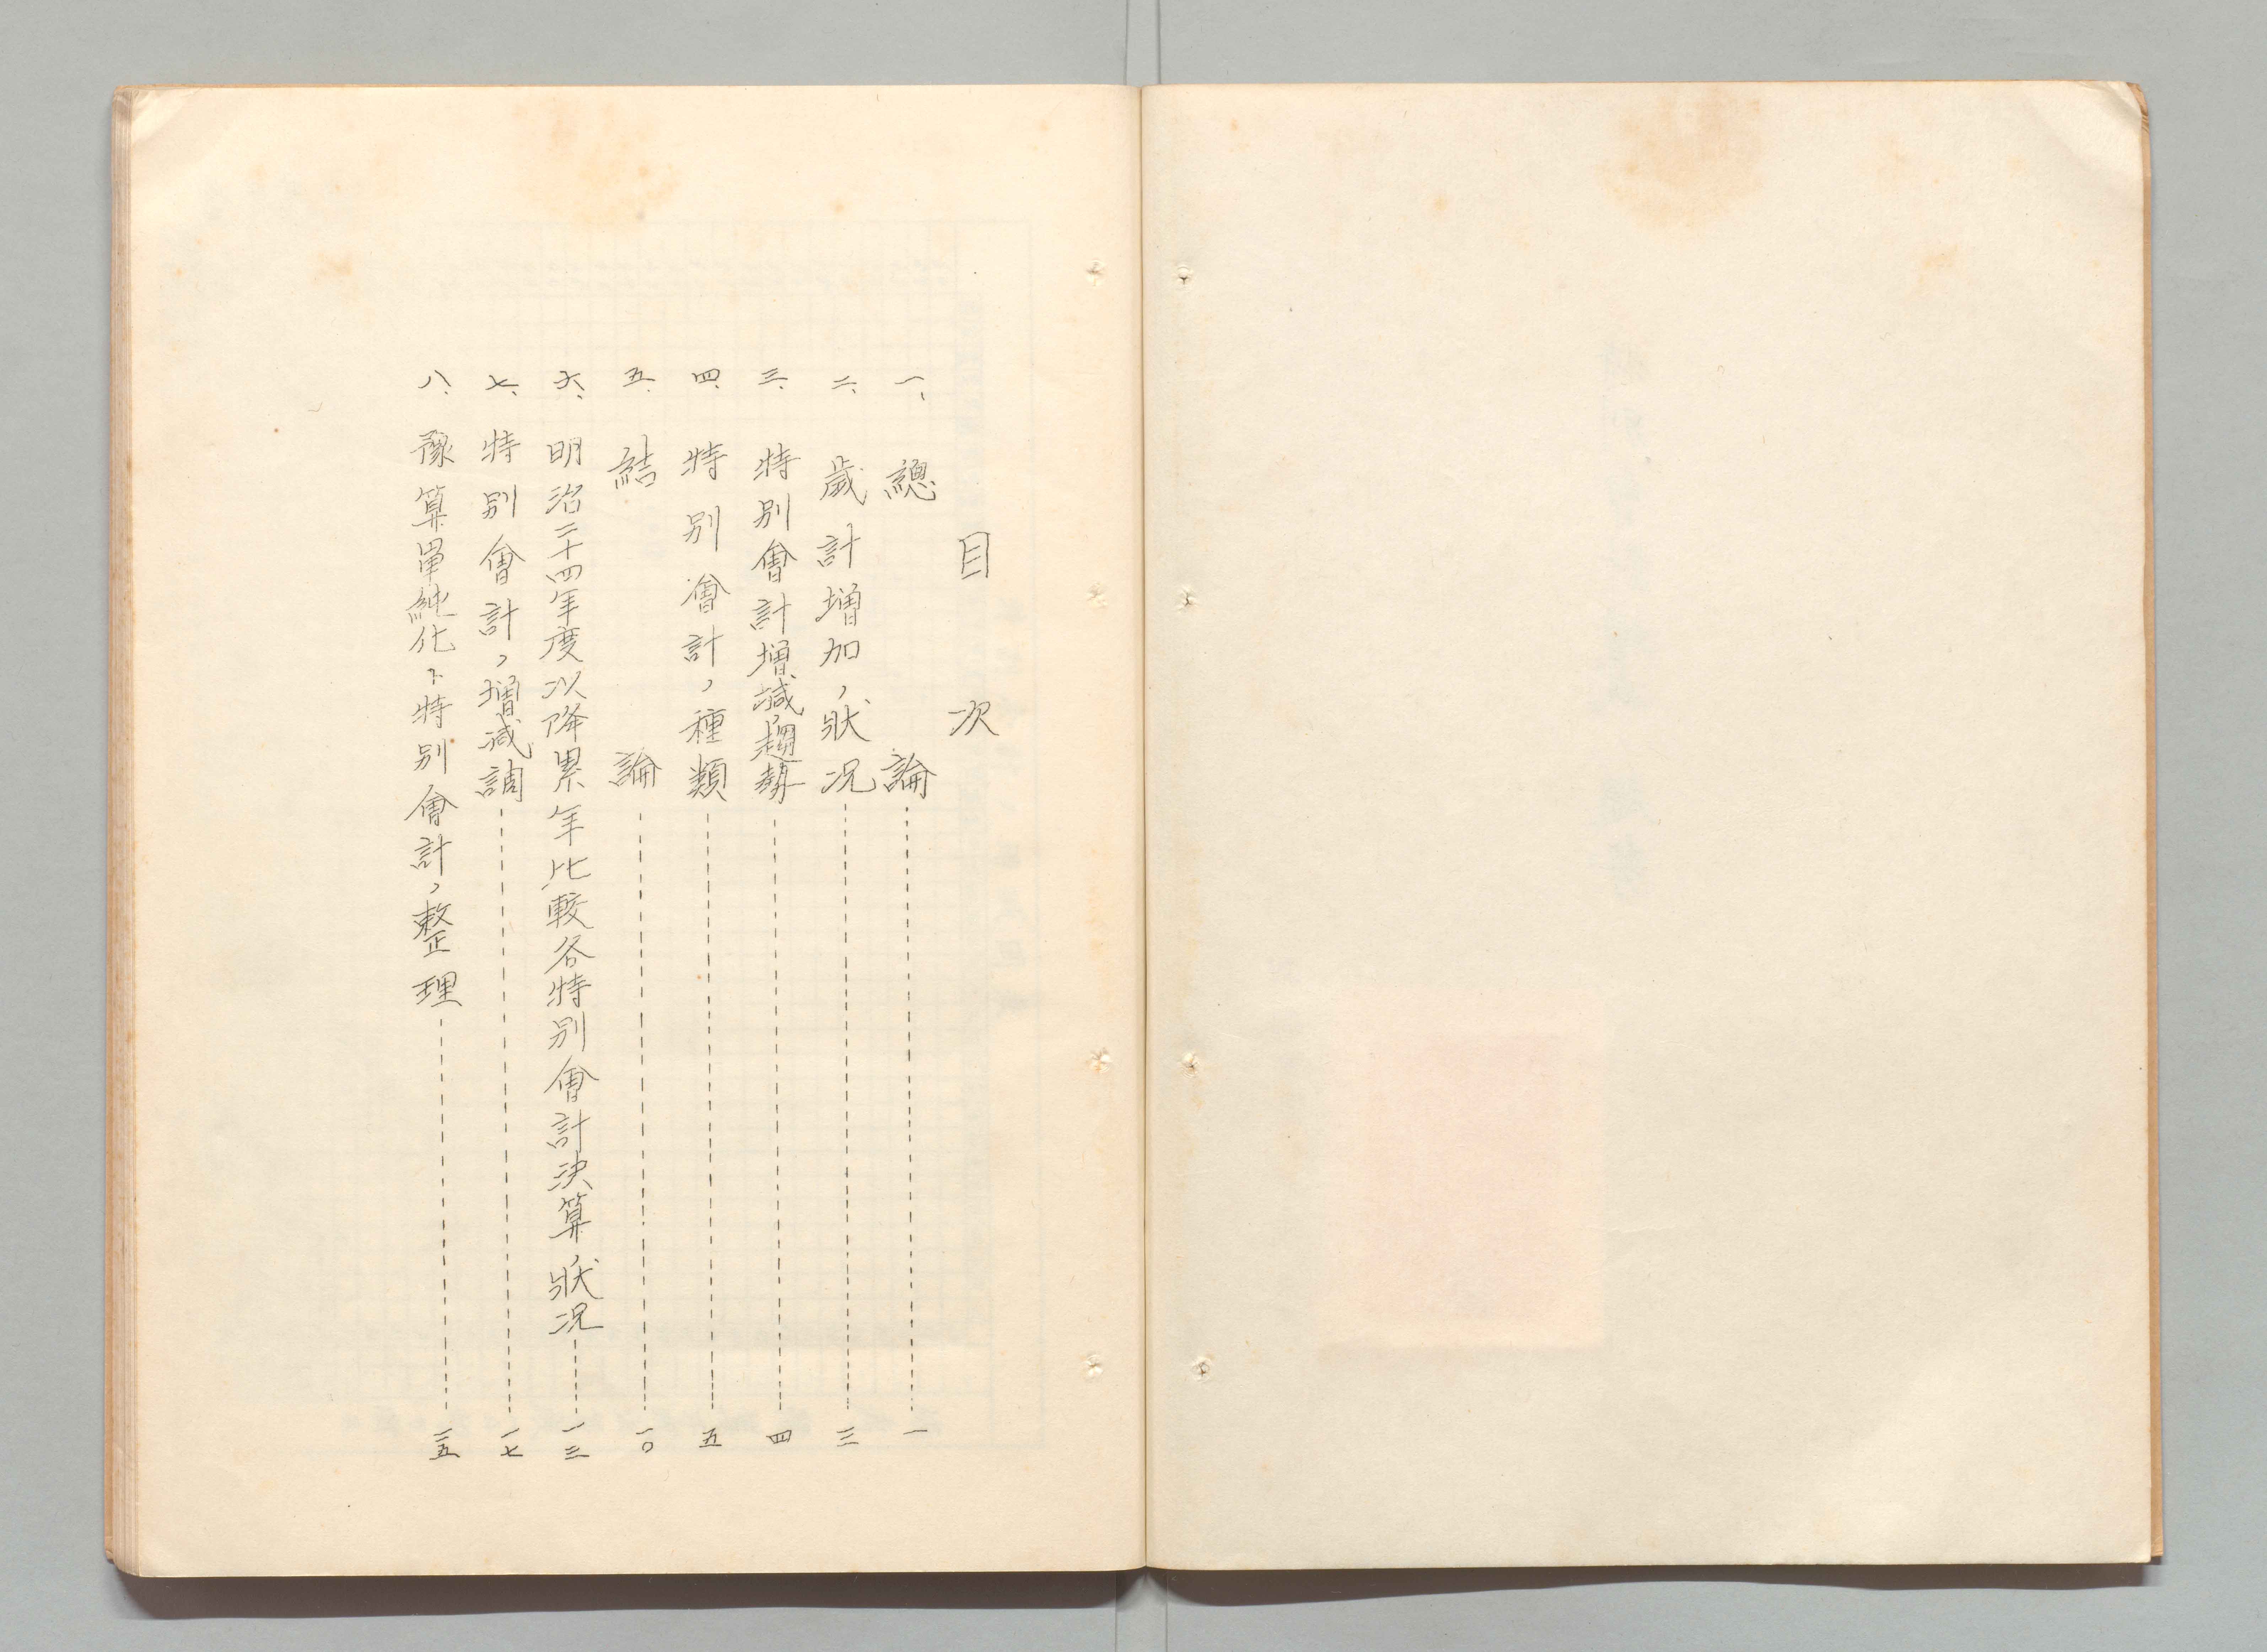 目次
一、總論……一
二、歲計增加ノ狀況……三
三、特別會計增減趨勢……四
四、特別會計ノ種類……五
五、結論……一〇
六、明治二十四年度以降累年比較各特別會計決算狀況……一三
七、特別會計ノ增減調……一七
八、豫算單純化ト特別會計ノ整理……三五